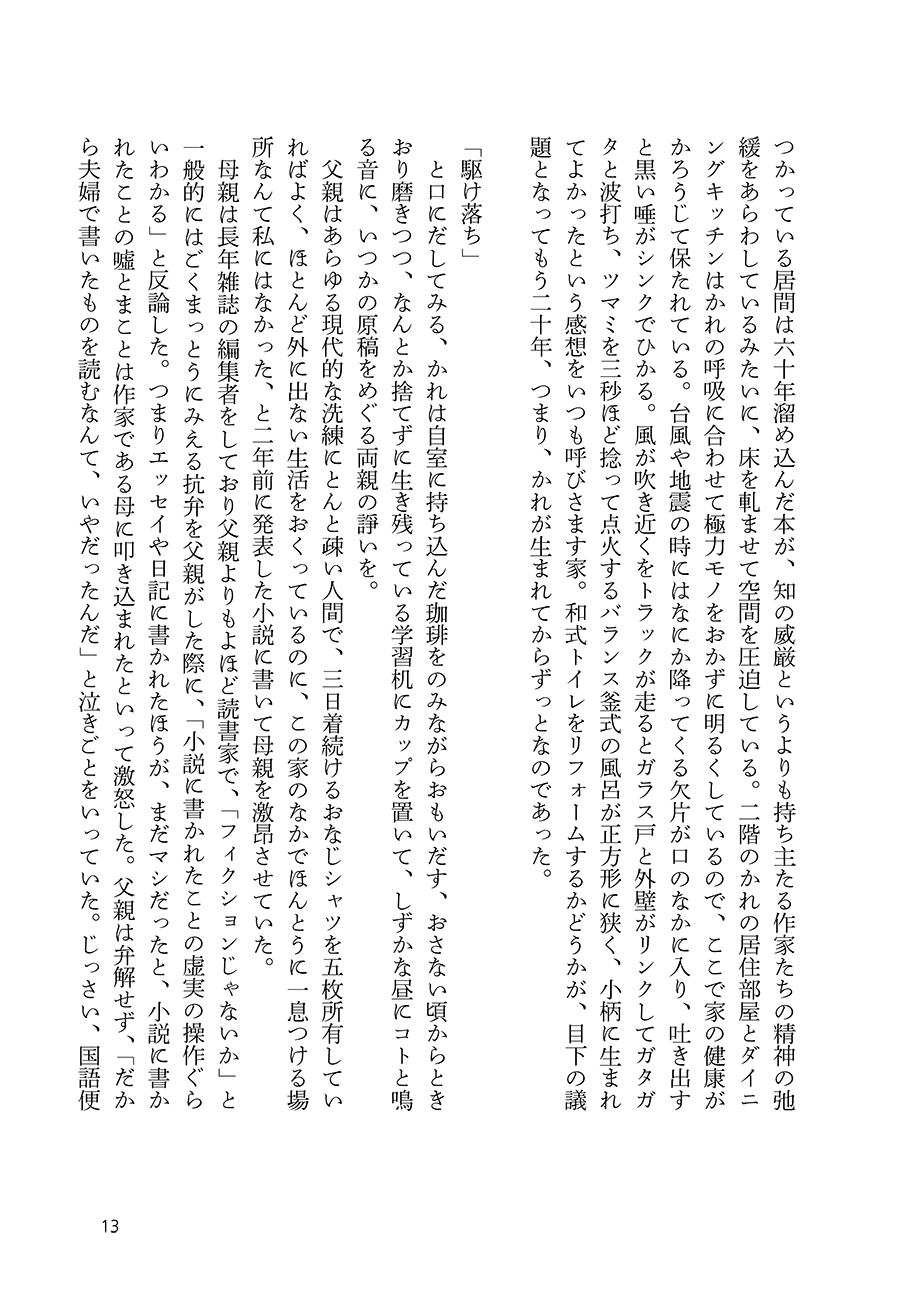 つかっている居間は六十年溜め込んだ本が、知の威厳というよりも持ち主たる作家たちの精神の弛
緩をあらわしているみたいに、床を軋ませて空間を圧迫している。二階のかれの居住部屋とダイニ
ングキッチンはかれの呼吸に合わせて極力モノをおかずに明るくしているので、ここで家の健康が
かろうじて保たれている。台風や地震の時にはなにか降ってくる欠片が口のなかに入り、吐き出す
と黒い唾がシンクでひかる。風が吹き近くをトラックが走るとガラス戸と外壁がリンクしてガタガ
タと波打ち、ツマミを三秒ほど捻って点火するバランス釜式の風呂が正方形に狭く、小柄に生まれ
てよかったという感想をいつも呼びさます家。和式トイレをリフォームするかどうかが、目下の議
題となってもう二十年、つまり、かれが生まれてからずっとなのであった。
「駆け落ち」
と口にだしてみる、かれは自室に持ち込んだ珈琲をのみながらおもいだす、おさない頃からとき
おり磨きつつ、なんとか捨てずに生き残っている学習机にカップを置いて、しずかな昼にコトと鳴
る音に、いつかの原稿をめぐる両親の諍いを。
父親はあらゆる現代的な洗練にとんと疎い人間で、三日着続けるおなじシャツを五枚所有してい
ればよく、ほとんど外に出ない生活をおくっているのに、この家のなかでほんとうに一息つける場
所なんて私にはなかった、と二年前に発表した小説に書いて母親を激昂させていた。
母親は長年雑誌の編集者をしており父親よりもよほど読書家で、「フィクションじゃないか」と
一般的にはごくまっとうにみえる抗弁を父親がした際に、「小説に書かれたことの虚実の操作ぐら
いわかる」と反論した。つまりエッセイや日記に書かれたほうが、まだマシだったと、小説に書か
れたことの嘘とまことは作家である母に叩き込まれたといって激怒した。父親は弁解せず、「だか
ら夫婦で書いたものを読むなんて、いやだったんだ」と泣きごとをいっていた。じっさい、国語便
13